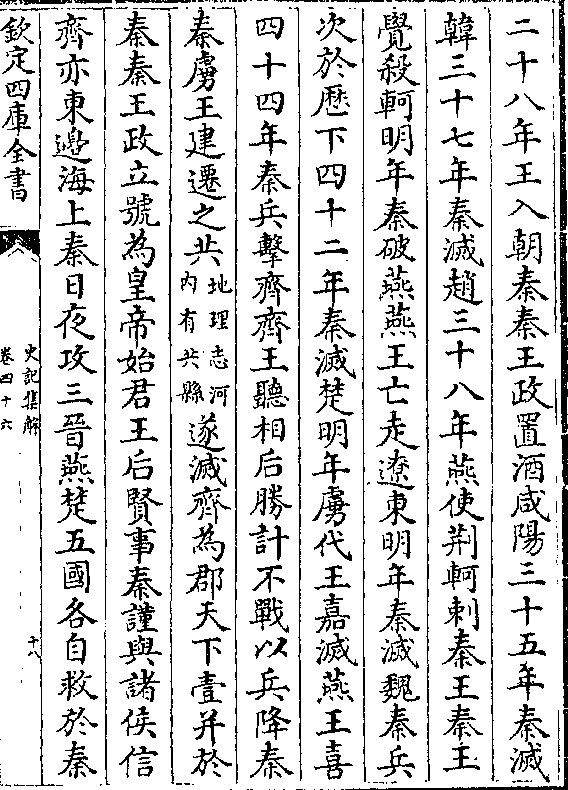 二十八年王入朝秦秦王政置酒咸陽三十五年秦滅
韓三十七年秦滅趙三十八年燕使荆軻刺秦王秦王
覺殺軻明年秦破燕燕王亡走遼東明年秦滅魏秦兵
次於歷下四十二年秦滅楚明年虜代王嘉滅燕王喜
四十四年秦兵擊齊齊王聽相后勝計不戰以兵降秦
秦虜王建遷之共地理志河內有共縣遂滅齊為郡天下壹并於
秦秦王政立號為皇帝始君王后賢事秦謹與諸侯信
齊亦東邊海上秦日夜攻三晉燕楚五國各自救於秦
欽定四庫全書
史記集解
卷四十六
十八